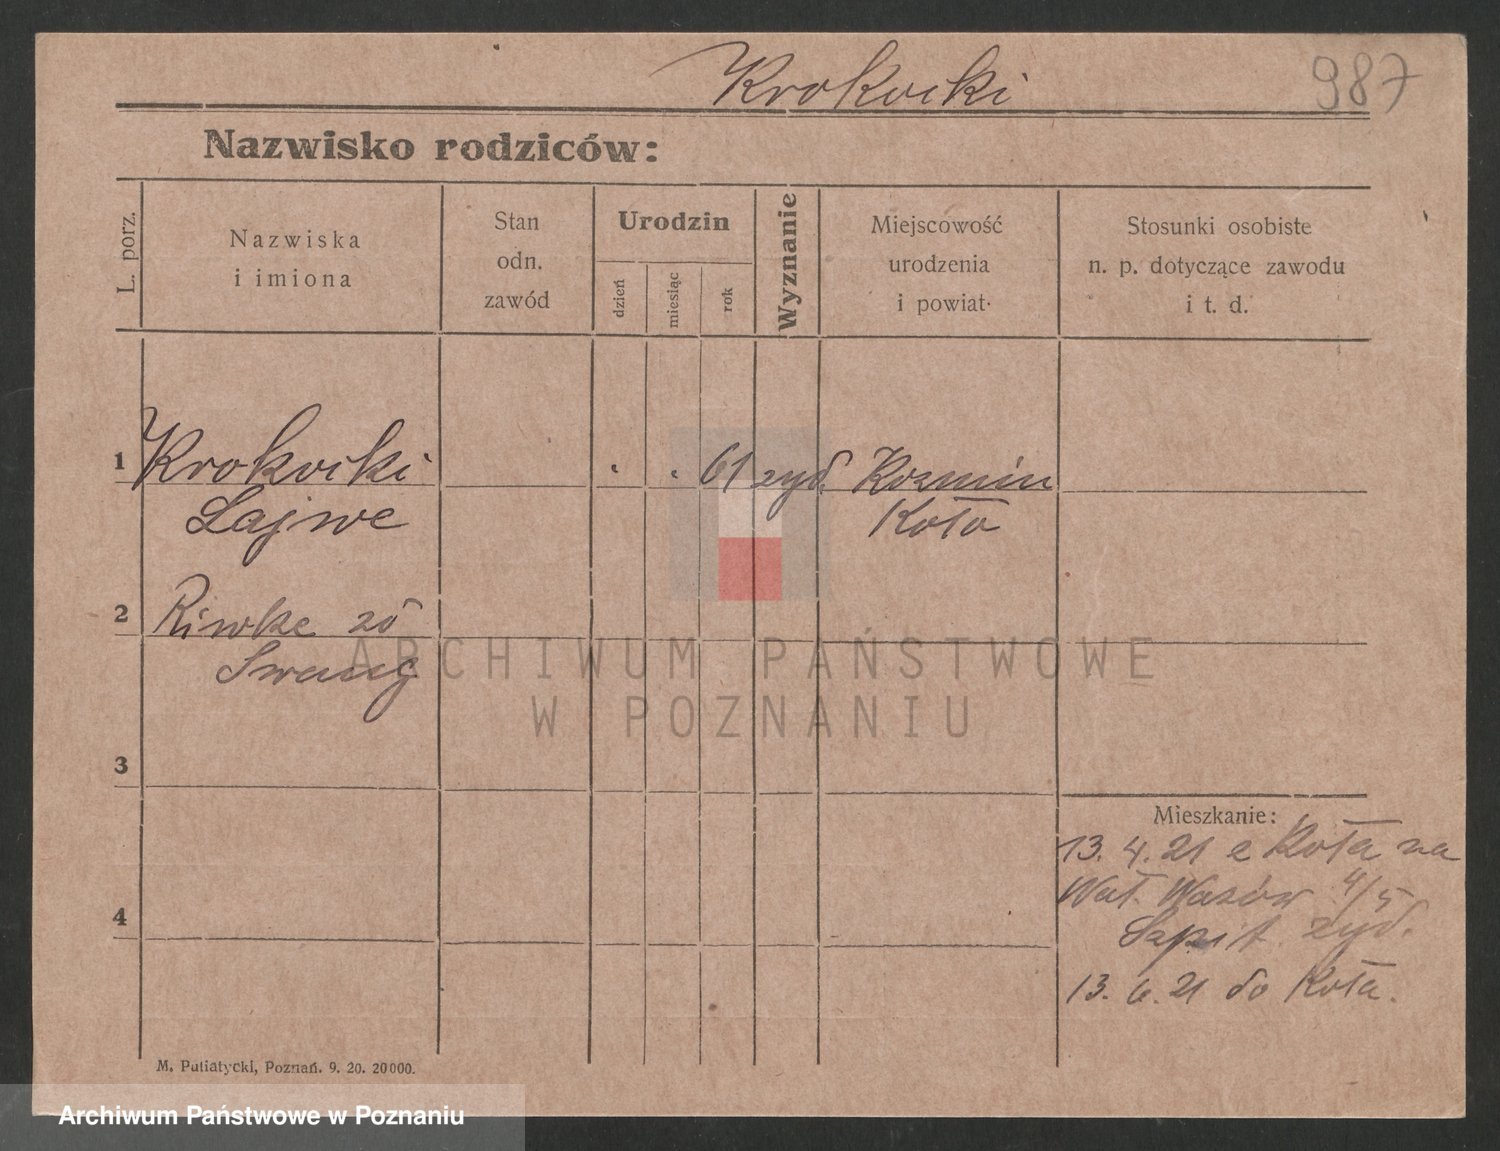 Krokocki
987
Nazwisko rodziców:
L. porz.
Nazwiska
i imiona
Stan
odn.
zawód
Urodzin
dzień
miesiąc
rok
Wyznanie
Miejscowość
urodzenia
i powiat
Stosunki osobiste
n. p. dotyczące zawodu
i t. d.
1
Krokocki
Lajwe
61
żyd.
Kozmin
Koło
2
Riwke
3
4
Mieszkanie:
13. 4. 21 z Koła na
Wał. Wazów 4/5
Szpit. żyd.
13. 6. 21 do Koła.
M. Putiatycki, Poznań. 9. 20. 20000.
ARCHIWUM PAŃSTWOWE
W POZNANIU
Archiwum Państwowe w Poznaniu